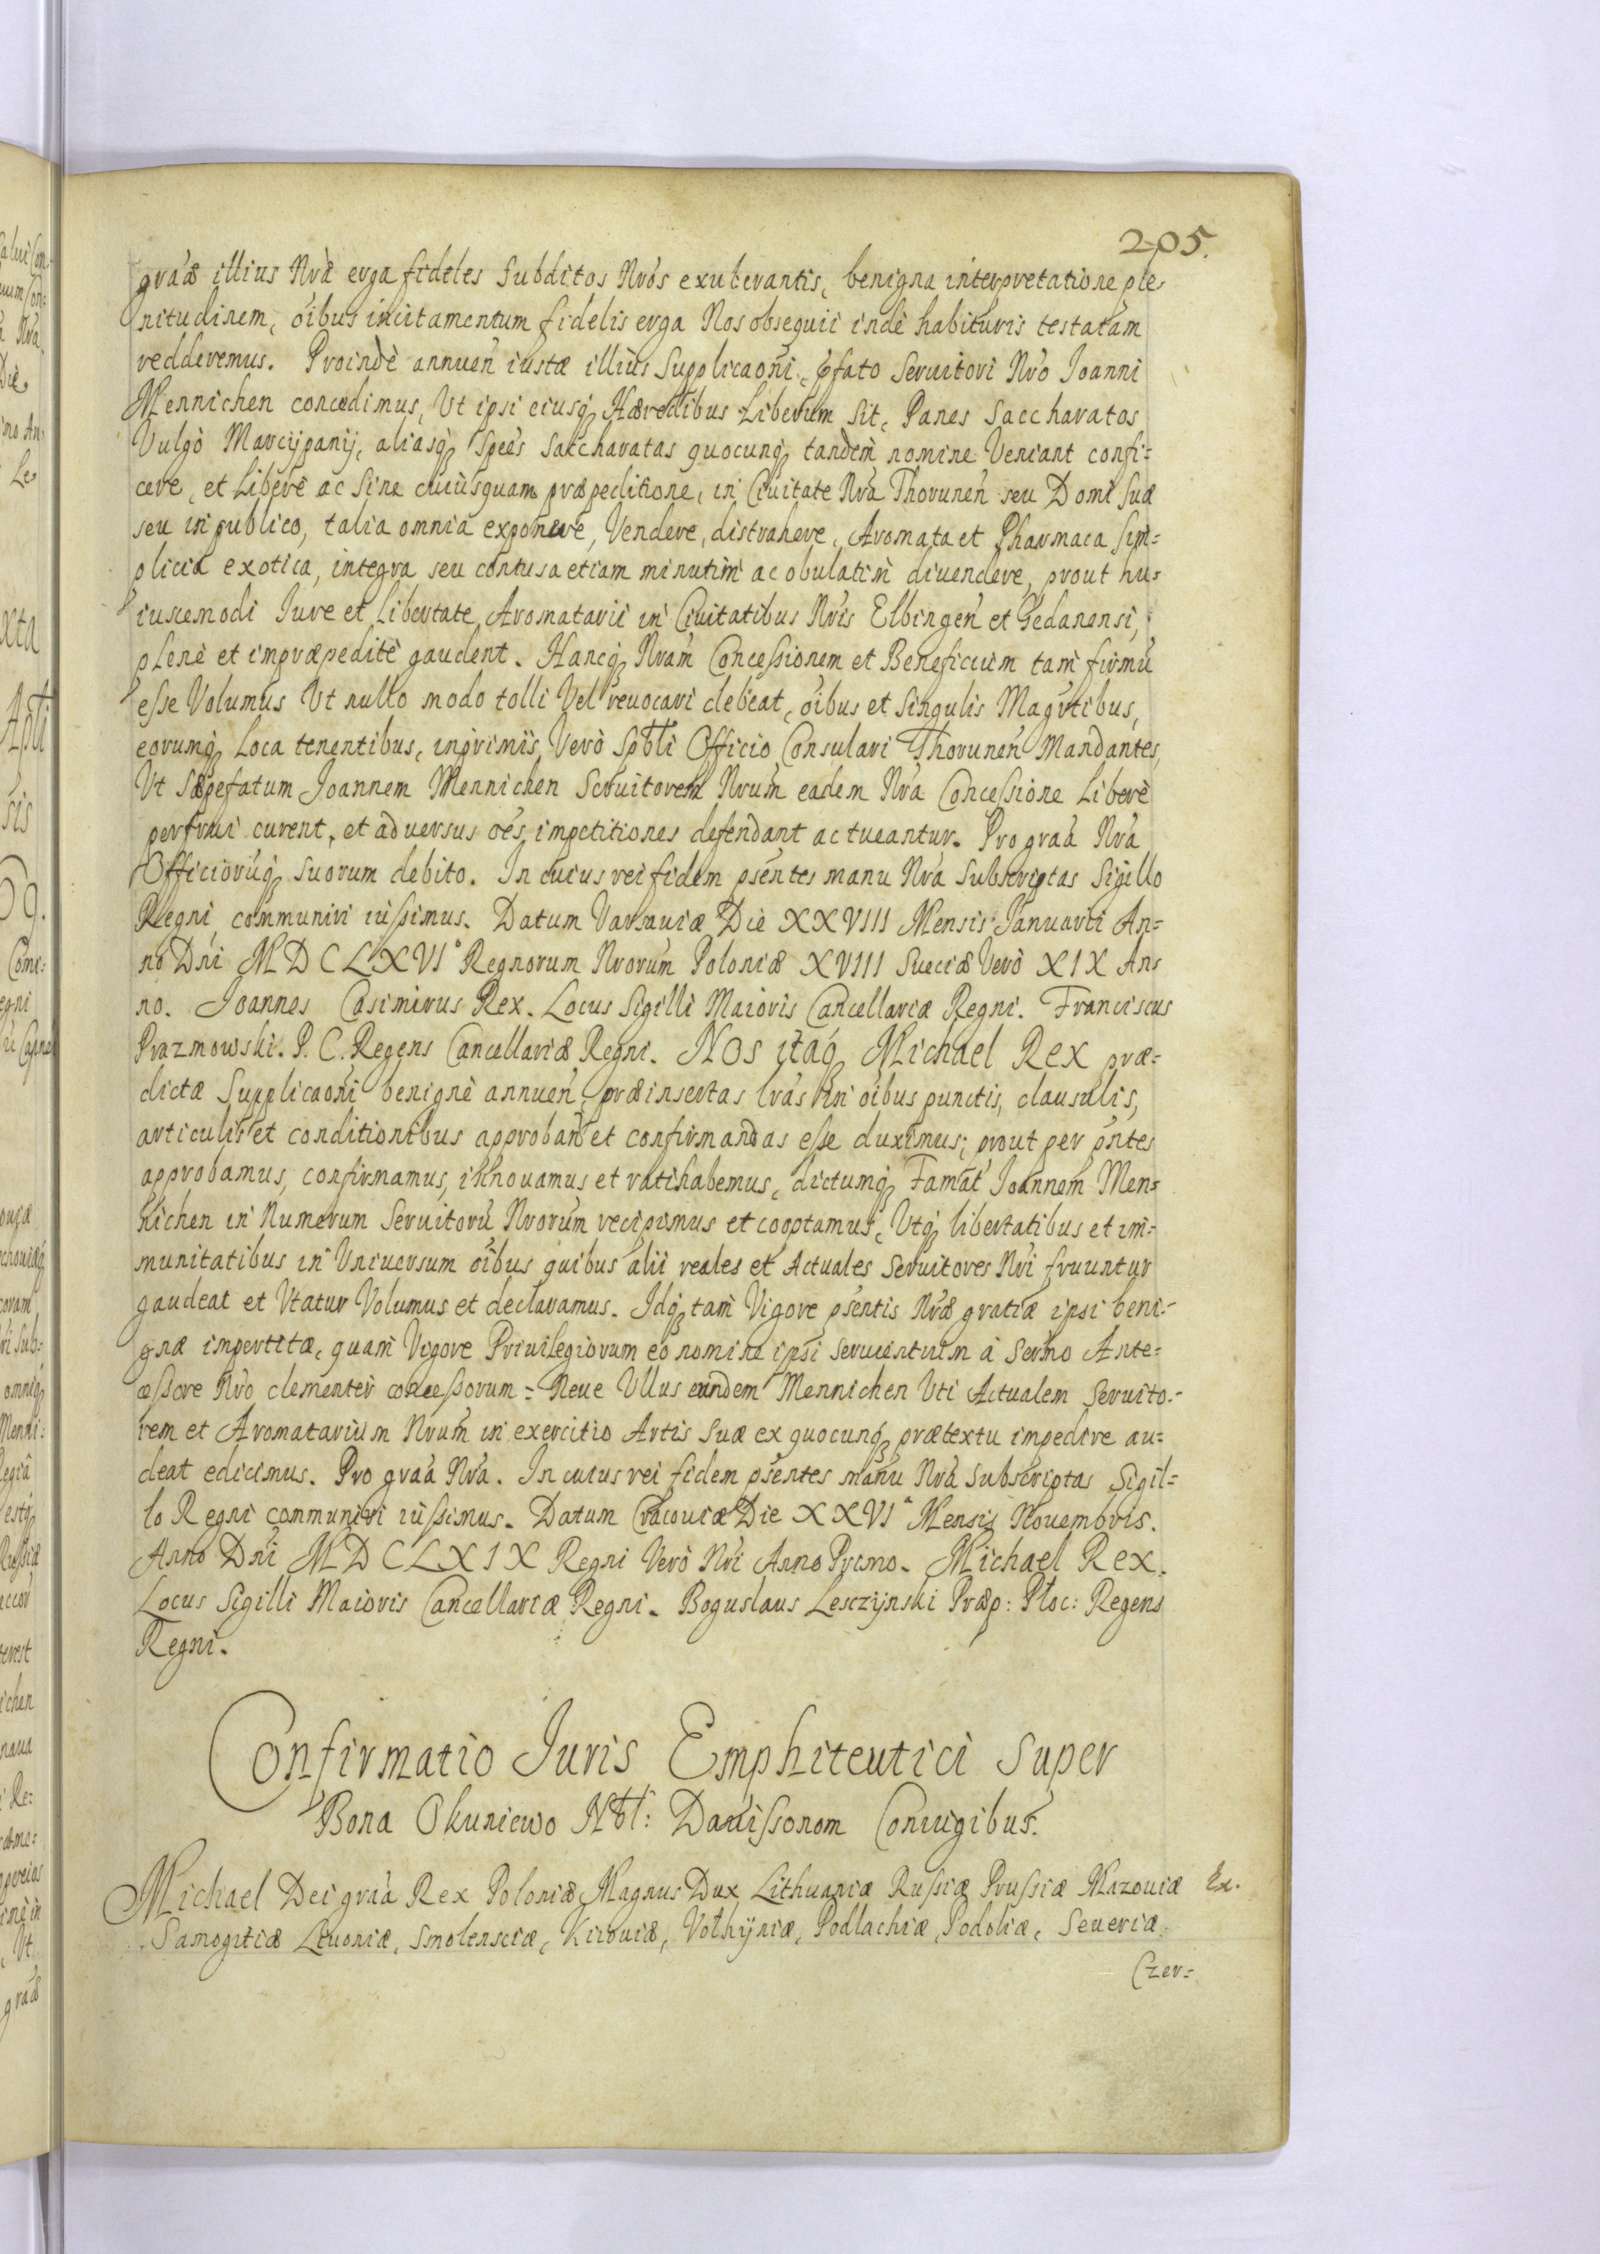 205.
graæ illius Nræ erga fideles Subditos Nros exuberantis, benigna interpretatione ple-
nitudinem, oibus incitamentum fidelis erga Nos obsequii indè habituris testatam
redderemus. Proindè annuen iustæ illius Supplicaoni, pfato Seruitori Nro Joanni
Mennichen concedimus, Ut ipsi eiusq Hæredibus Liberum Sit, Panes Saccharatos
Vulgò Marcijpanij, aliasq spees Saccharatas quocunq tandem nomine Veniant confi=
cere, et Liberè ac Sine cuiusquam præpeditione, in Ciuitate Nra Thorunen seu Domi Suæ
seu in publico, talia omnia exponere, Vendere, distrahere, Aromata et Pharmaca Sim=
plicia exotica, integra seu contusa etiam minutim ac obulatim diuendere, prout hu-
iuscemodi Iure et Libertate Aromatarii in Ciuitatibus Nris Elbingen et Gedanensi,
plenè et impræpeditè gaudent. Hancq Nram Concessionem et Beneficium tam firmu
esse Volumus Ut nullo modo tolli Vel reuocari debeat, oibus et Singulis Magrtibus,
eorumq Loca tenentibus, inprimis Verò Spbli Officio Consulari Thorunen Mandantes,
Ut Sæpefatum Joannem Mennichen Seruitorem Nrum eadem Nra Concessione Liberè
perfrui curent, et aduersus oes impetitiones defendant ac tueantur. Pro graa Nra
Officioruq Suorum debito. In cuius rei fidem psentes manu Nra Subscriptas Sigillo
Regni communiri iussimus. Datum Varsauiæ Die XXVIII Mensis Januarii An=
no Dni MDCLXVI° Regnorum Nrorum Poloniæ XVIII Sueciæ Verò XIX An-
no. Joannes Casimirus Rex. Locus Sigilli Maioris Cancellariæ Regni. Franciscus
Prazmowski. P. C. Regens Cancellariæ Regni. Nos itaq Michael Rex præ=
dictæ Supplicaoni benignè annuen, præinsertas lras in oibus punctis, clausulis,
articulis et conditionibus approban et confirmandas esse duximus; prout per pntes
approbamus, confirmamus, innouamus et ratihabemus, dictumq Famat Joannem Men-
nichen in Numerum Seruitoru Nrorum recipimus et cooptamus, Utq libertatibus et im=
munitatibus in Uniuersum oibus quibus alii reales et Actuales Seruitores Nri fruuntur
gaudeat et Utatur Volumus et declaramus. Idq tam Vigore psentis Nræ gratiæ ipsi beni=
gnæ impertitæ, quam Vigore Priuilegiorum eo nomine ipsi seruientium à Sermo Ante=
cessore Nro clementer concessorum = Neue Ullus eundem Mennichen Uti Actualem Seruito-
rem et Aromatarium Nrum in exercitio Artis Suæ ex quocunq prætextu impedire au=
deat edicimus. Pro graa Nra. In cuius rei fidem psentes manu Nra Subscriptas Sigil=
lo Regni communiri iussimus. Datum Cracouiæ Die XXVIª Mensis Nouembris.
Anno Dni MDCLXIX Regni Verò Nri Anno Primo. Michael Rex.
Locus Sigilli Maioris Cancellariæ Regni. Boguslaus Lesczijnski Præp: Płoc: Regens
Regni.
Confirmatio Juris Emphiteutici Super
Bona Okuniewo Nbl: Dauissonom Coniugibus.
Michael Dei graa Rex Poloniæ Magnus Dux Lithuaniæ Russiæ Prussiæ Mazouiæ
Samogitiæ Liuoniæ, Smolensciæ, Kiiouiæ, Volhijniæ, Podlachiæ, Podoliæ, Seueriæ
Czer=